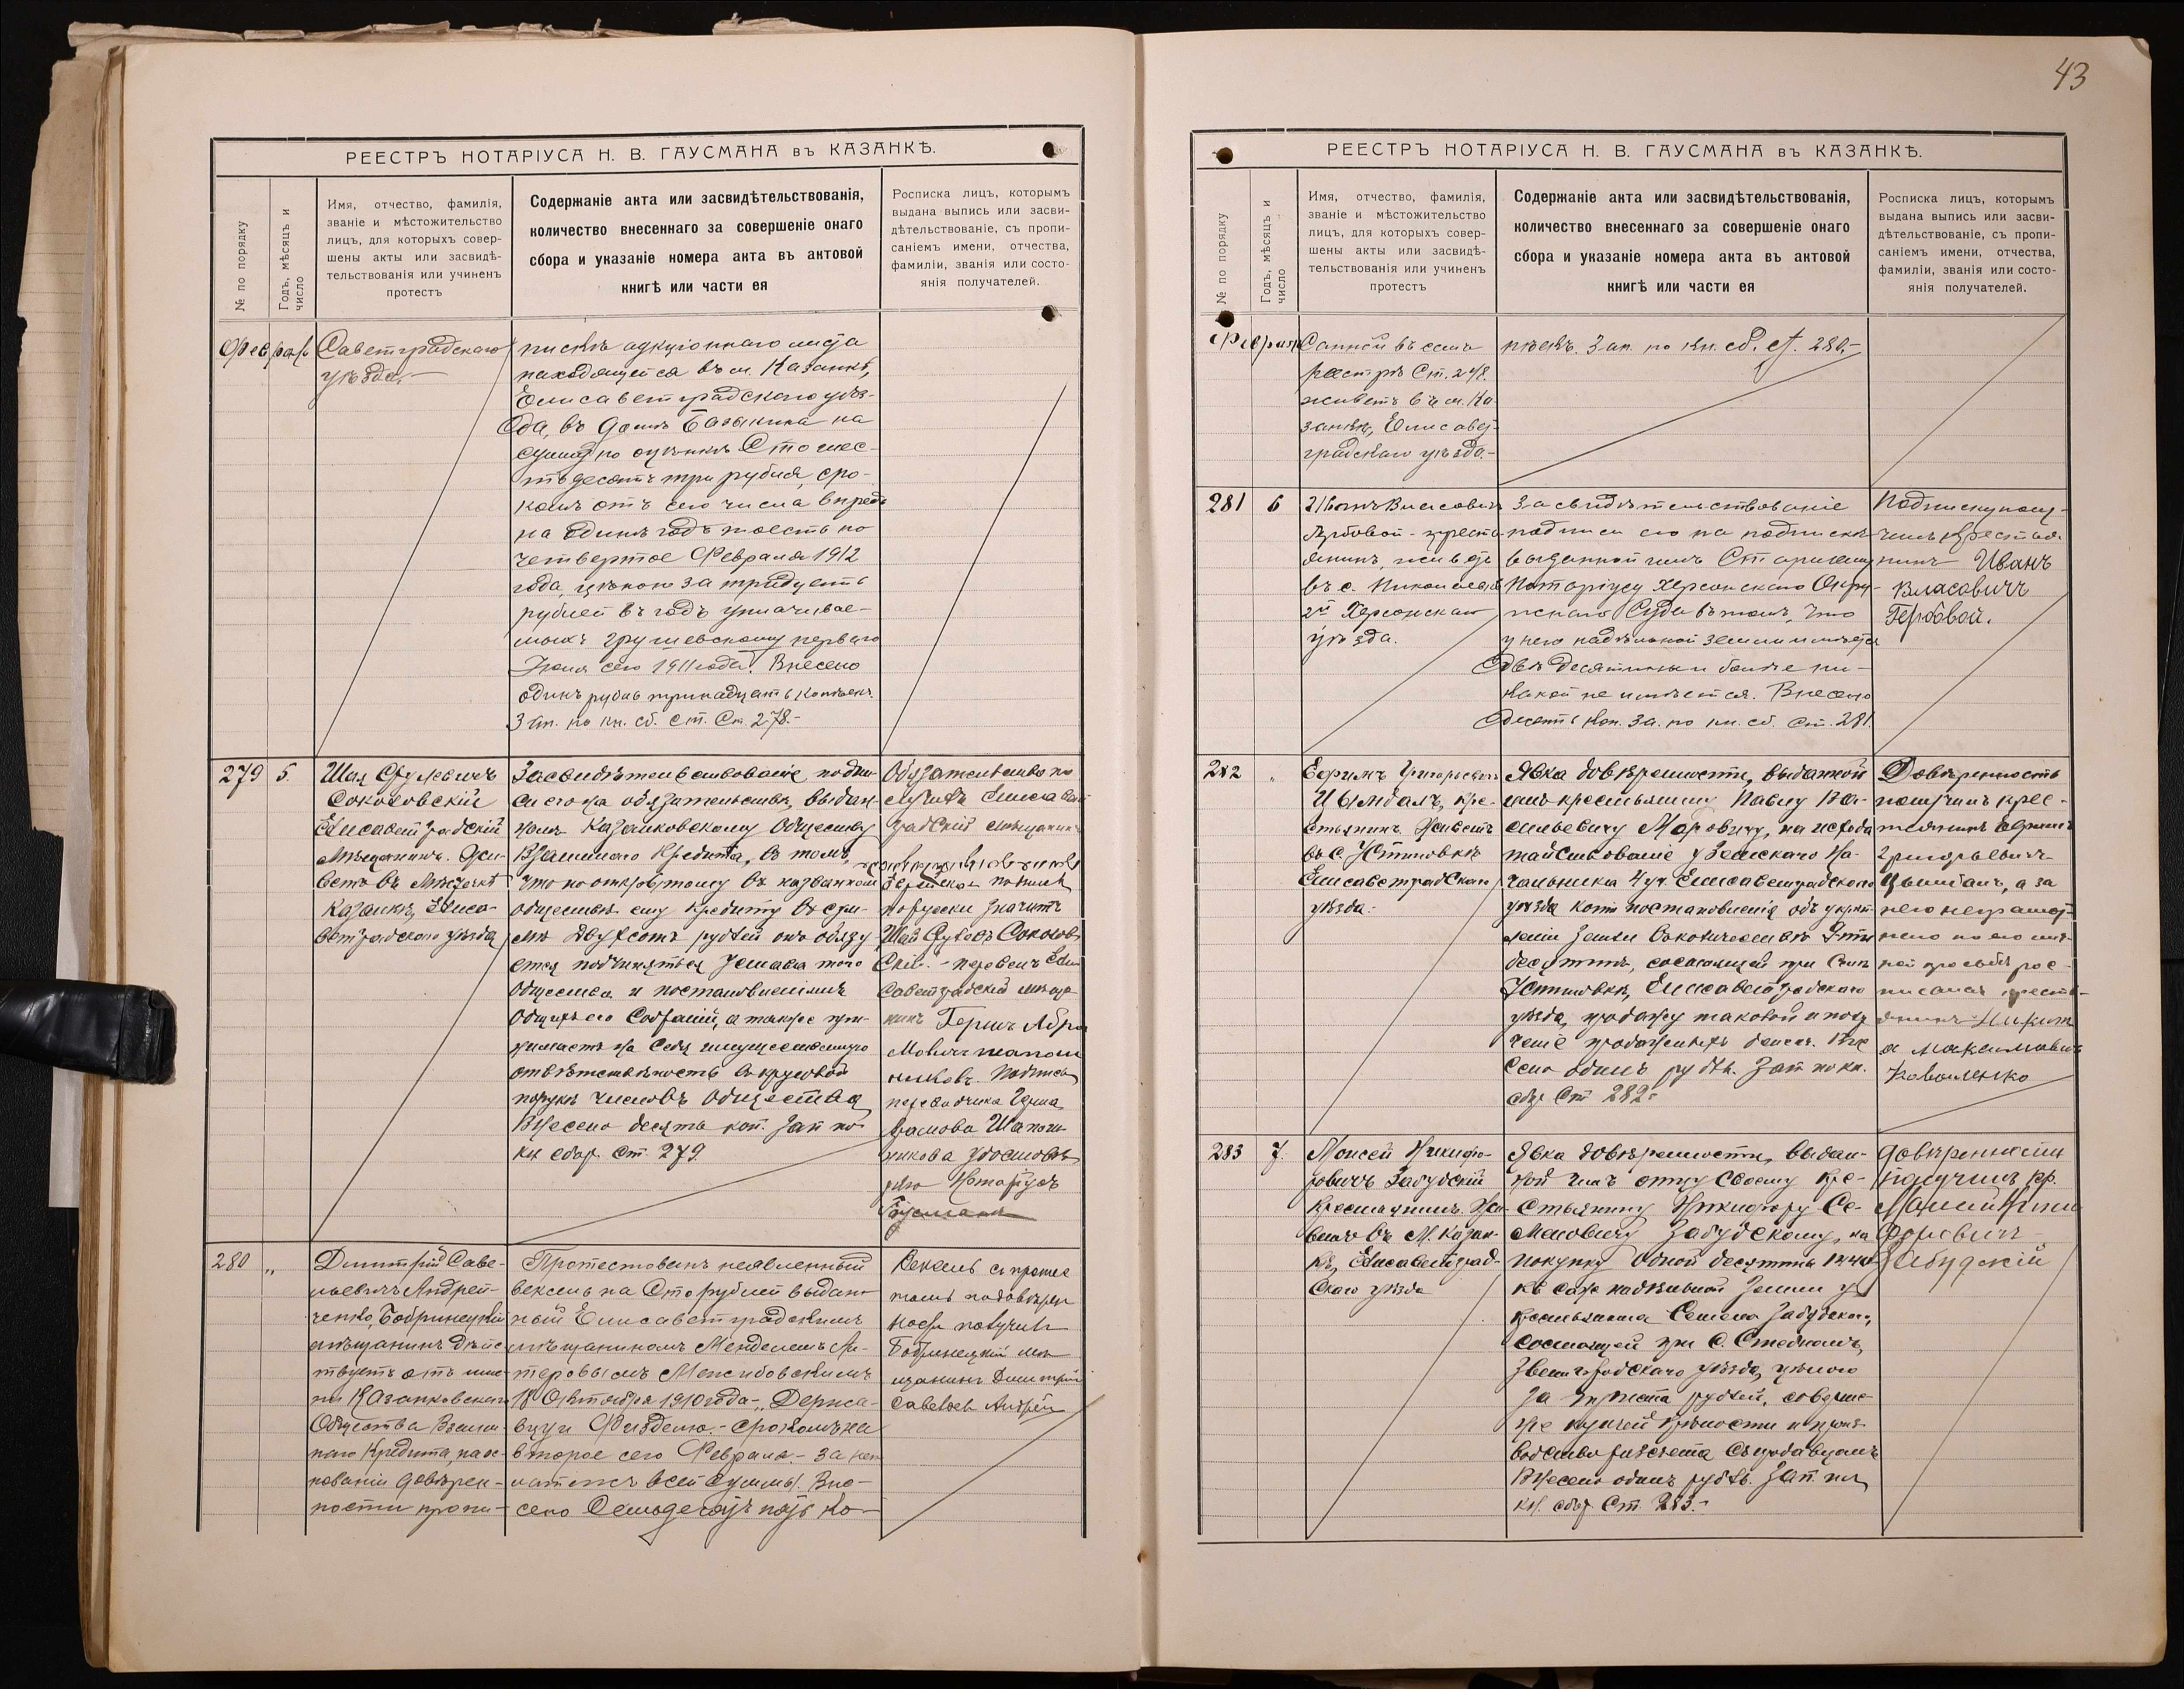 43
РЕЕСТРЪ НОТАРІУСА Н. В. ГАУСМАНА въ КАЗАНКѢ.
№ по порядку
Годъ, мѣсяцъ и
число
Имя, отчество, фамилія,
званіе и мѣстожительство
лицъ, для которыхъ совер-
шены акты или засвидѣ-
тельствованія или учиненъ
протестъ
Содержаніе акта или засвидѣтельствованія,
количество внесеннаго за совершеніе онаго
сбора и указаніе номера акта въ актовой
книгѣ или части ея
Росписка лицъ, которымъ
выдана выпись или засви-
дѣтельствованіе, съ пропи-
саніемъ имени, отчества,
фамиліи, званія или состо-
янія получателей.
Февраль
Саветградскаго
уѣзда.
писнъ аукціоннаго
находящейся въ м. Казанкѣ,
Елисаветградскаго уѣз-
да, въ домѣ Базыкина на
сумму по оцѣнкѣ Сто шес-
тьдесятъ три рубля, сро-
комъ отъ сего числа впредь
на одинъ годъ тоесть по
четвертое Февраля 1912
года, цѣною за тридцать
рублей въ годъ уплачивае-
мыхъ Грушевскому перваго
сего 1911 года. Внесено
одинъ рубль тринадцать копѣекъ.
Зап. по кн. сб. ст. Ст. 278.-
279
5.
Шая Срулевичъ
Соколовскій
Елисаветградскій
Мѣщанинъ. Жи-
ветъ въ Мѣстечкѣ
Казанкѣ, Елиса-
ветградскаго уѣзда
Засвидѣтельствованіе подпи-
си его на обязательствѣ, выдан-
номъ Казанковскому Обществу
Взаимнаго Кредита, въ томъ,
что по открытому въ названномъ
обществѣ ему кредиту въ сум-
мѣ Двухсотъ рублей онъ обязу-
ется подчиняться Уставу того
Общества и постановленіямъ
Общихъ его Собраній, а также при-
нимаетъ на себя имущественную
отвѣтственность въ круговой
порукѣ членовъ Общества
Внесено десять коп. Зап по
кн сбор Ст 279.
Обязательство по
лучилъ Елисавет
градскій мѣщанинъ
порусски значитъ
Шая Срулевъ Соколов
скій. - перевелъ Ели
саветградскій мѣща
нинъ Герш Абра
мовичъ Шапош
никовъ. Подпись
переводчика Герша
Абрамова Шапош-
никова удостовѣ
ряю Нотаріусъ
Гаусманъ
280
"
Дмитрій Саве-
льевичъ Андрей-
ченко, Бобринецкій
мѣщанинъ дѣйс-
твуетъ отъ име-
ни Казанковскаго
Общества Взаим-
наго Кредита, на ос-
нованіи довѣрен-
ности пропи-
Протестованъ неявленный
вексель на Сто рублей выдан-
ный Елисаветградскимъ
мѣщаниномъ Менделемъ Ли-
теровымъ Межибовскимъ
18 Октября 1910 года - Дериса-
вуци Фиделю. - срокомъ на
второе сего Февраля. - за неп-
латежъ всей суммы. Вне-
сено Семьдесятъ пять ко-
Вексель съ протес
томъ подовѣрен
ности получилъ
Бобринецкій мѣ
щанинъ Дмитрій
Савельев Андрей
РЕЕСТРЪ НОТАРІУСА Н. В. ГАУСМАНА въ КАЗАНКѢ.
№ по порядку
Годъ, мѣсяцъ и
число
Имя, отчество, фамилія,
званіе и мѣстожительство
лицъ, для которыхъ совер-
шены акты или засвидѣ-
тельствованія или учиненъ
протестъ
Содержаніе акта или засвидѣтельствованія,
количество внесеннаго за совершеніе онаго
сбора и указаніе номера акта въ актовой
книгѣ или части ея
Росписка лицъ, которымъ
выдана выпись или засви-
дѣтельствованіе, съ пропи-
саніемъ имени, отчества,
фамиліи, званія или состо-
янія получателей.
Февраля
Санной въ семъ
реестрѣ Ст. 248.
живетъ въ м. Ка
занкѣ, Елисавет-
градскаго уѣзда.-
пѣекъ. Зап. по кн. сб. ст. 280.-
281
6
Иванъ Власовичъ
Гербовой - кресть
янинъ, живетъ
въ с. Николаевкѣ
2й Херсонскаго
уѣзда.
Засвидѣтельствованіе
подписи его на подпискѣ
выданной имъ Старшему
Нотаріусу Херсонскаго Окру-
жнаго Суда въ томъ, что
у него надѣльной земли имѣется
двѣ десятины и болѣе ни-
какой не имѣется. Внесено
десять коп. За. по кн. сб. Ст. 281.
Подписку полу-
чилъ крестья-
нинъ Иванъ
Власовичъ
Гербовой.
282
"
Ефримъ Григорьевичъ
Цымбалъ, кре-
стьянинъ. Живетъ
въ с. Устиновкѣ
Елисаветградскаго
уѣзда.-
Явка довѣренности, выданной
имъ крестьянину Павлу Ва-
сильевичу Маровичу, на исхода
тайствованіе у Земскаго На-
чальника 4 уч. Елисаветградскаго
уѣзда копіи постановленія объ укрѣп-
леніи Земли въ количествѣ 9ти
десятинъ, состоящей при селѣ
Устиновкѣ, Елисаветградскаго
уѣзда, продажу таковой и полу
ченіе продажныхъ денегъ. Вне
сено одинъ рубль. Зап по кн.
сбор Ст 282.-
Довѣренность
получилъ крес-
тьянинъ Ефримъ
Григорьевичъ
Цымбалъ, а за
него неграмот-
наго по его лич-
ной просьбѣ рос-
писался кресть-
янинъ Никит
а Максимовичъ
Коваленко
283
7.
Моисей Никифо-
ровичъ Забудскій
Крестьянинъ. Жи-
ветъ въ М. Казан-
кѣ, Елисаветград-
скаго уѣзда
Явка довѣренности, выдан-
ной имъ отцу своему кре-
стьянину Никифору Се-
меновичу Забудскому, на
покупку одной десятины 1440
кв саж надѣльной Земли у
крестьянина Семена Забудскаго,
состоящей при С. Стебномъ,
Звенигородскаго уѣзда, цѣною
за триста рублей, соверше-
ніе купчей крѣпости и произ-
водство разсчета съ продавцомъ
Внесено одинъ рубль. Зап. по
кн. сбор Ст. 283.-
Довѣренности
получилъ кр.
Моисей Ники
форович
Забудскій